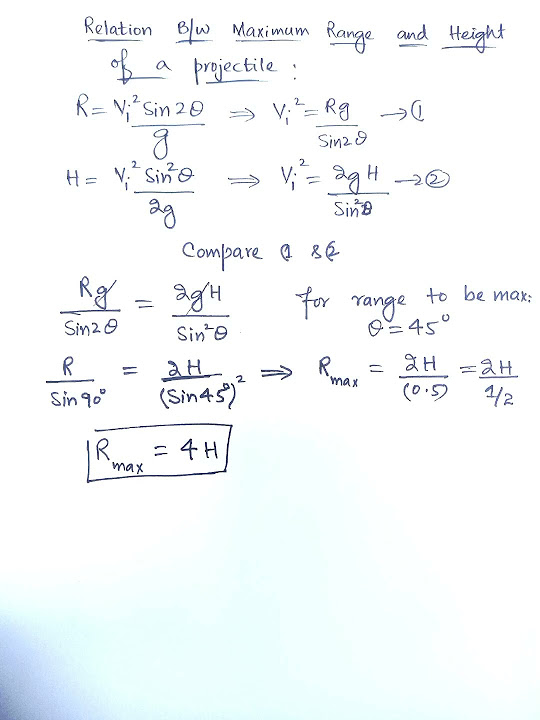 Relation B/w Maximum Range and Height
of a projectile :
R = Vi² Sin 2θ / g ⟹ Vi² = Rg / Sin2θ → ①
H = Vi² Sin²θ / 2g ⟹ Vi² = 2gH / Sin²θ → ②
Compare ① & ②
Rg / Sin2θ = 2gH / Sin²θ for range to be max:
θ = 45°
R / Sin90° = 2H / (Sin45°)² ⟹ Rmax = 2H / (0.5) = 2H / 1/2
Rmax = 4H